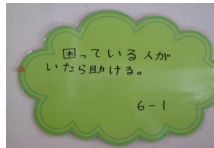 困っている人が
いたら助ける。
6-1